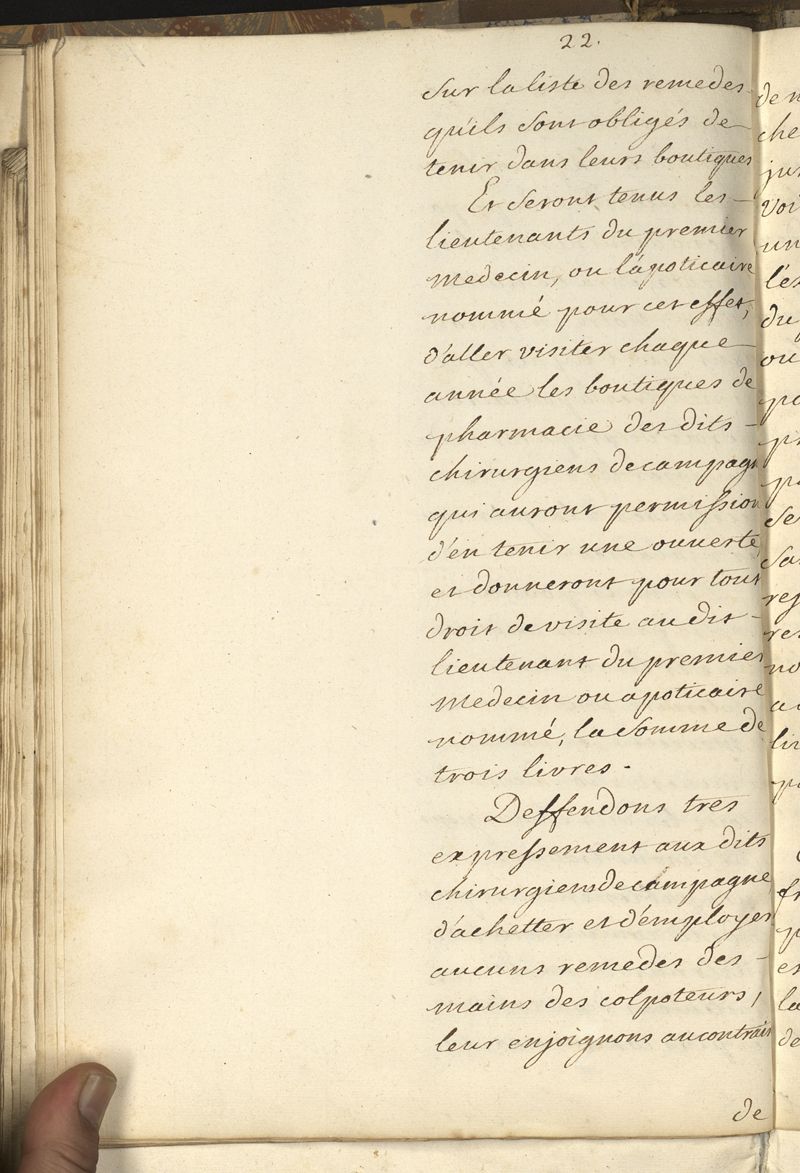 22.
Sur la liste des remedes
qu'ils sont obligés de
tenir dans leurs boutiques
Et seront tenus les
lieutenants du premier
medecin, ou l'apoticaire
nommé pour cet effet,
d'aller visiter chaque
année les boutiques de
pharmacie des dits
chirurgiens de campagn
qui auront permission
d'en tenir une ouverte,
et donneront pour tout
droit de visite au dit
lieutenant du premier
medecin ou apoticaire
nommé, la somme de
trois livres.
Deffendons tres
expressement aux dits
chirurgiens de campagne
d'achetter et d'employer
aucuns remedes des
mains des colpoteurs,
leur enjoignons au contrair
de